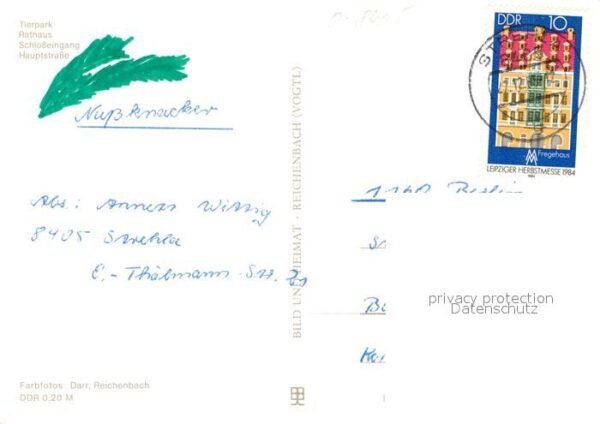 Tierpark
Rathaus
Schloßeingang
Hauptstraße
Nußknacker
Abs.: Anners Wittig
8405 Strehla
E.-Thälmann-Str.
BILD UND HEIMAT · REICHENBACH (VOGTL)
DDR 10
Fregehaus
LEIPZIGER HERBSTMESSE 1984
Berlin
privacy protection
Datenschutz
Farbfotos: Darr, Reichenbach
DDR 0,20 M